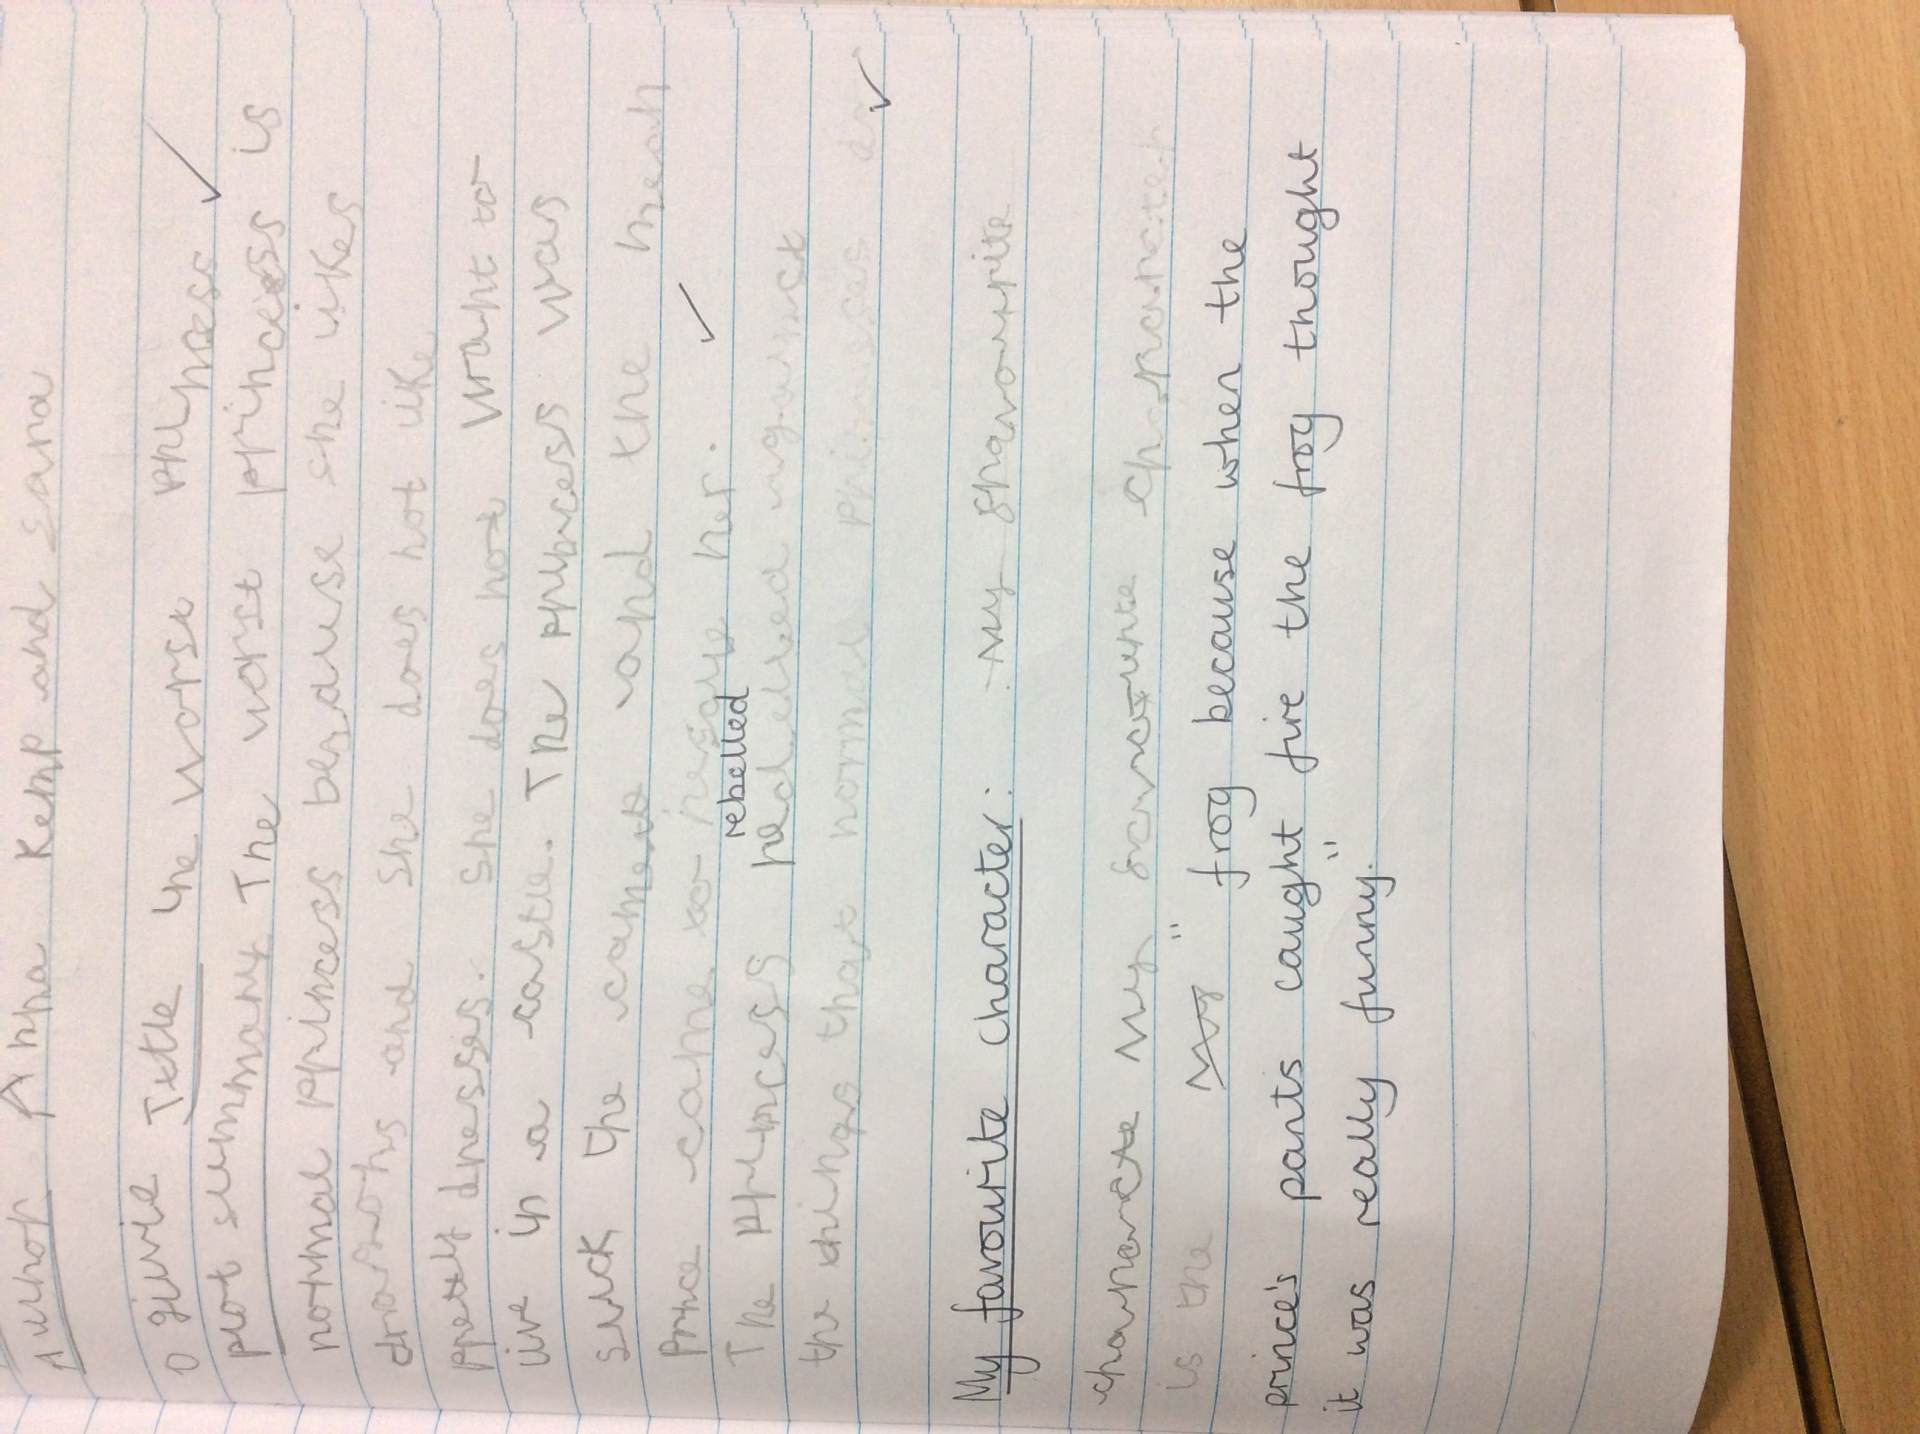 Author Anna Kemp and Sara
O givie Title the worst princess
plot summary The worst princess is
normal princess because she likes
dragons and she does not like
pretty dresses. She does not want to
live in a castle. The princess was
suck the comes and the mean
Prince came to rescue her.
rebelled
The princess rebelled against
the things that normal princesses do
My favourite character: My favourite
character My favourite character
is the My " frog because when the
prince's pants caught fire the frog thought
it was really funny. "